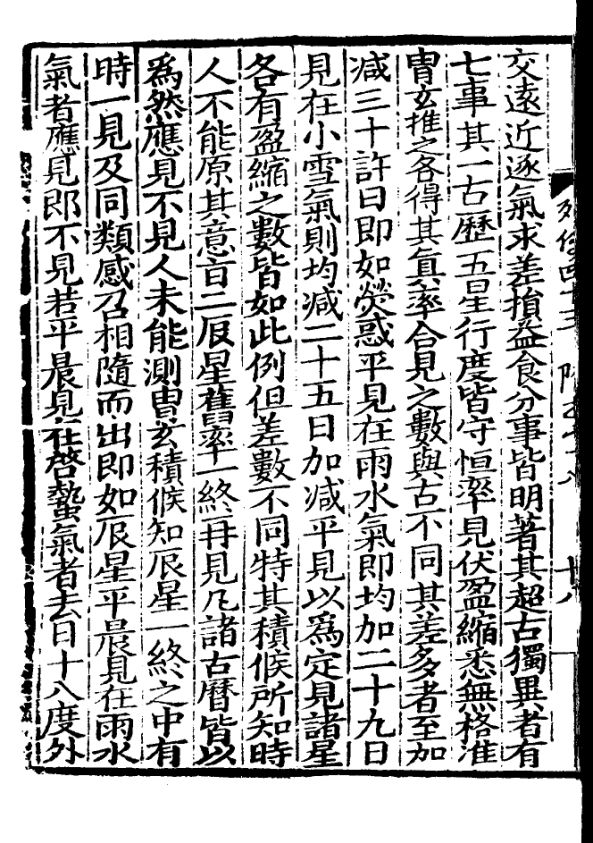 交遠近逐氣求差損益食分事皆明著其超古獨異者有
七事其一古歷五星行度皆守恒率見伏盈縮悉無格准
冑玄推之各得其眞率合見之數與古不同其差多者至加
减三十許日即如熒惑平見在雨水氣即均加二十九日
見在小雪氣則均减二十五日加减平見以爲定見諸星
各有盈縮之數皆如此例但差數不同特其積候所知時
人不能原其意旨二辰星舊率一終再見凡諸古曆皆以
爲然應見不見人未能測冑玄積候知辰星一終之中有
時一見及同類感召相隨而出即如辰星平晨見在雨水
氣者應見即不見若平晨見在啓蟄氣者去日十八度外